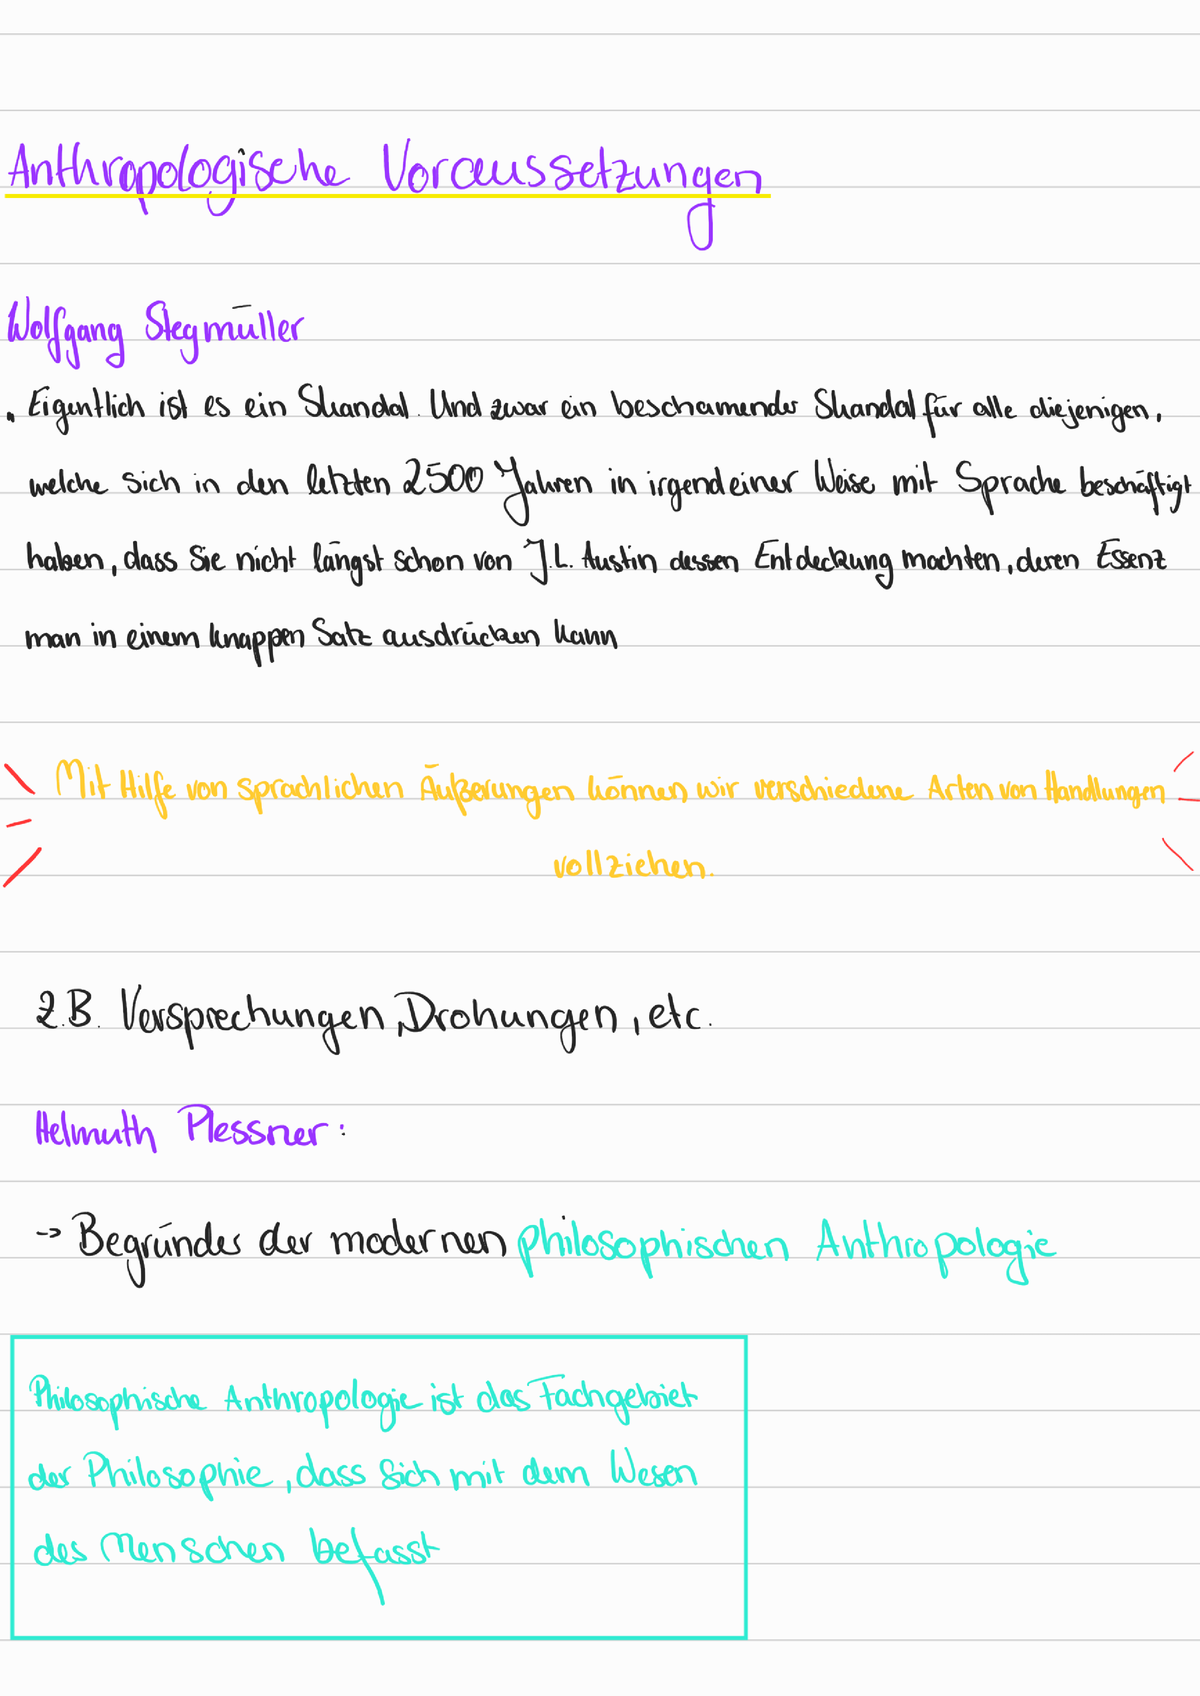 Anthropologische Voraussetzungen
Wolfgang Stegmüller
. Eigentlich ist es ein Skandal. Und zwar ein beschamender Skandal für alle diejenigen,
welche sich in den letzten 2500 Jahren in irgendeiner Weise mit Sprache beschäftigt
haben, dass Sie nicht längst schon von J.L. Austin dessen Entdeckung machten, deren Essenz
man in einem knappen Satz ausdrücken kann
Mit Hilfe von sprachlichen Äußerungen können wir verschiedene Arten von Handlungen
vollziehen.
Z.B. Versprechungen, Drohungen, etc.
Helmuth Plessner:
-> Begründer der modernen philosophischen Anthropologie
Philosophische Anthropologie ist das Fachgebiet
der Philosophie, dass sich mit dem Wesen
des Menschen befasst